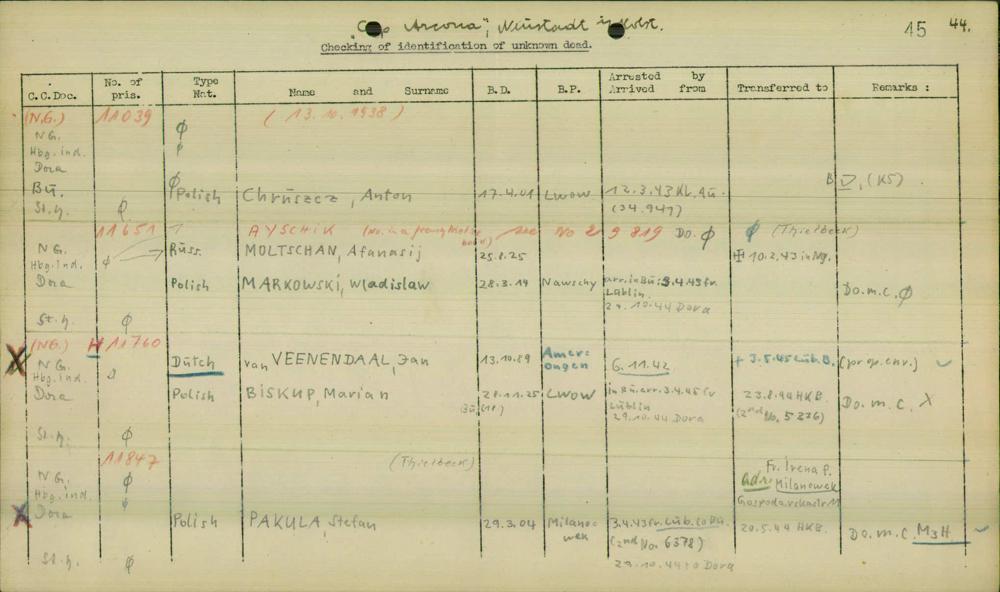 "Cap Arcona", Neustadt in Holst.
45 44.
Checking of identification of unknown dead.
C.C.Doc. No. of pris. Type Nat. Name and Surname B.D. B.P. Arrested by Arrived from Transferred to Remarks :
(N.G.) 11039 (13.10.1938)
N G. ϕ
Hbg.ind. ϕ
Dora
Bü. ϕ Polish Chruszcz, Anton 17.4.01 Lwow 12.3.43 Kl. Au. (34.947)
St.h. ϕ
11651 AYSCHIK see No 29819 Do. ϕ ϕ (Thielbeck)
N G. Russ. MOLTSCHAN, Afanasij 25.8.25 10.2.43 in Ng.
Hbg.ind. ϕ
Dora Polish MARKOWSKI, Wladislaw 28.3.19 Nawschy arr.in Bü. 3.4.43 fr. Lublin. 29.10.44 Dora Do.m.c. ϕ
St.h. ϕ
(NG.) H 11760
X N G. Dutch van VEENENDAAL, Jan 13.10.89 Amerongen 6.11.42 + 3.5.45 Lüb.B.
Hbg.ind.
Dora Polish BISKUP, Marian 28.11.25 (Bü (18) Lwow in Bü.arr.3.4.43 fr Lublin 29.10.44 Dora 23.8.44 HKB. (2nd No. 5226) Do.m.c. X
St.h. ϕ
11847 (Thielbeck)
N G. ϕ Fr. Irena P.
Hbg.ind. ϕ adr. Milanowek
X Dora Gospodarska
Polish PAKULA, Stefan 29.3.04 Milanowek 3.4.43 fr. Lub. to Bü. (2nd No. 6378) 29.10.44 to Dora 20.5.44 HKB. Do.m.c. M3H.
St.h. ϕ